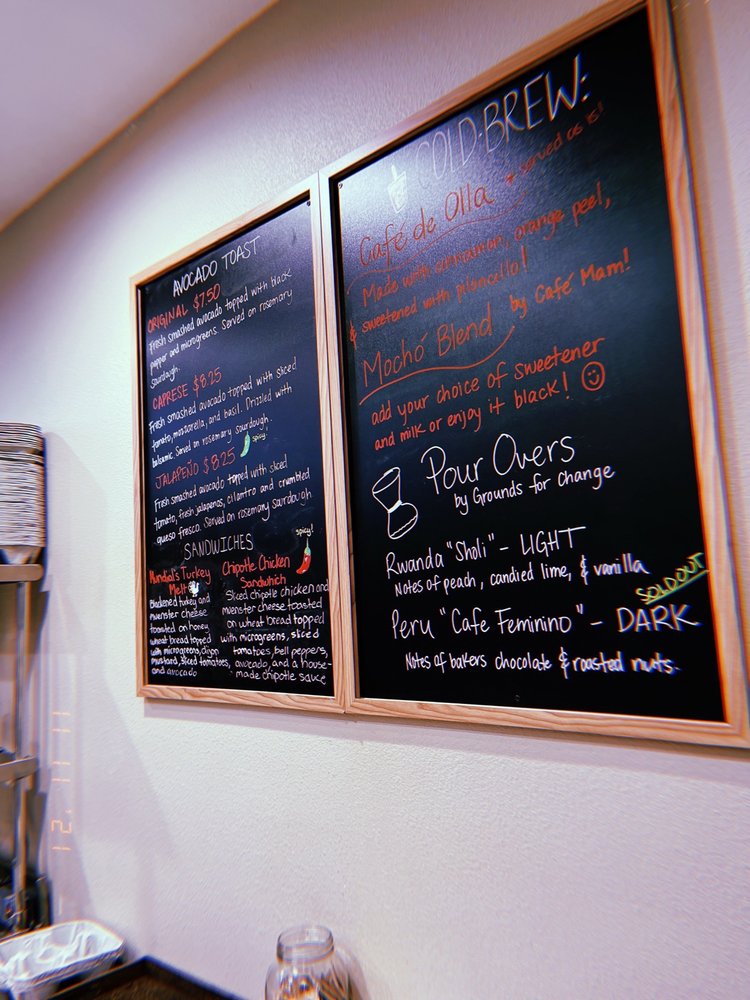 AVOCADO TOAST
ORIGINAL $7.50
Fresh smashed avocado topped with black
pepper and microgreens. Served on rosemary
sourdough.
CAPRESE $8.25
Fresh smashed avocado topped with sliced
tomato, mozzarella, and basil. Drizzled with
balsamic. Served on rosemary sourdough.
spicy!
JALAPEÑO $8.25
Fresh smashed avocado topped with sliced
tomato, fresh jalapenos, cilantro and crumbled
queso fresco. Served on rosemary sourdough.
SANDWICHES
Mundial's Turkey
Melt
Blackened turkey and
muenster cheese
toasted on honey
wheat bread topped
with microgreens, dijon
mustard, sliced tomatoes,
and avocado
spicy!
Chipotle Chicken
Sandwhich
Sliced chipotle chicken and
muenster cheese toasted
on wheat bread topped
with microgreens, sliced
tomatoes, bell peppers,
avocado, and a house-
made chipotle sauce
COLD-BREW:
Café de Olla * served as is!
Made with cinnamon, orange peel,
& sweetened with piloncillo!
Mochó Blend by Café Mam!
add your choice of sweetener
and milk or enjoy it black!
Pour Overs
by Grounds for Change
Rwanda "Sholi" - LIGHT
Notes of peach, candied lime, & vanilla
SOLD OUT
Peru "Cafe Feminino" - DARK
Notes of bakers chocolate & roasted nuts.
12. 11. 11